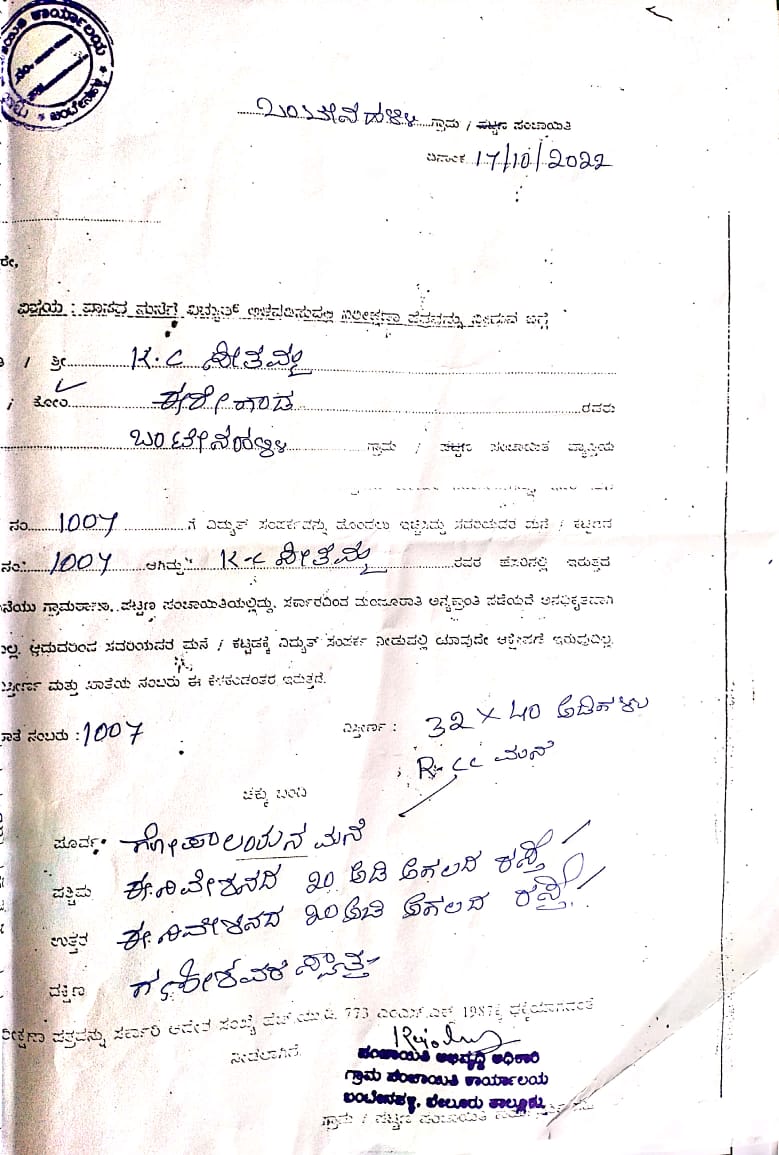 ಕಾರ್ಯಾಲಯ
ಬಂಟೇನಹಳ್ಳಿ
ಬಂಟೇನಹಳ್ಳಿ ಗ್ರಾಮ / ಪಟ್ಟಣ ಪಂಚಾಯಿತಿ
ದಿನಾಂಕ 17/10/2022
ರೇ,
ವಿಷಯ : ವಾಸದ ಮನೆಗೆ ವಿದ್ಯುತ್ ನಿರೀಕ್ಷಣಾ ಪತ್ರವನ್ನು ನೀಡುವ ಬಗ್ಗೆ
/ ಶ್ರೀ K.C
/ ಕೋಂ ರವರು
ಬಂಟೇನಹಳ್ಳಿ ಗ್ರಾಮ / ಪಟ್ಟಣ ಪಂಚಾಯಿತಿ ವ್ಯಾಪ್ತಿಯ
ನಂ 1007 ಗೆ ವಿದ್ಯುತ್ ಸಂಪರ್ಕವನ್ನು ಹೊಂದಲು ಇಚ್ಛಿಸಿದ್ದು ಸದರಿಯವರ ಮನೆ / ಕಟ್ಟಡದ
ನಂ: 1007 ಆಗಿದ್ದು K-C ರವರ ಹೆಸರಿನಲ್ಲಿ ಇರುತ್ತದೆ
ನೆಯು ಗ್ರಾಮಠಾಣಾ, ಪಟ್ಟಣ ಪಂಚಾಯಿತಿಯಲ್ಲಿದ್ದು, ಸರ್ಕಾರದಿಂದ ಮಂಜೂರಾತಿ ಅನ್ಯಕ್ರಾಂತಿ ಪಡೆಯದೆ ಅನಧಿಕೃತವಾಗಿ
ಲ್ಲ. ಆದುದರಿಂದ ಸದರಿಯವರ ಮನೆ / ಕಟ್ಟಡಕ್ಕೆ ವಿದ್ಯುತ್ ಸಂಪರ್ಕ ನೀಡುವಲ್ಲಿ ಯಾವುದೇ ಆಕ್ಷೇಪಣೆ ಇರುವುದಿಲ್ಲ.
ಸ್ತೀರ್ಣ ಮತ್ತು ಖಾತೆಯ ನಂಬರು ಈ ಕೆಳಕಂಡಂತರ ಇರುತ್ತದೆ.
ಾತೆ ನಂಬರು : 1007 ವಿಸ್ತೀರ್ಣ : 32 X 40 ಅಡಿಗಳು
R.CC ಮನೆ
ಚಕ್ಕು ಬಂದಿ
ಪೂರ್ವ ಗೋಪಾಲಯನ ಮನೆ
ಪಶ್ಚಿಮ ಈ ನಿವೇಶನದ 20 ಅಡಿ ಅಗಲದ ರಸ್ತೆ
ಉತ್ತರ ಈ ನಿವೇಶನದ 20 ಅಡಿ ಅಗಲದ ರಸ್ತೆ
ದಕ್ಷಿಣ ಗಣೇಶವರ ಸ್ವತ್ತು
ರೀಕ್ಷಣಾ ಪತ್ರವನ್ನು ಸರ್ಕಾರಿ ಆದೇಶ ಸಂಖ್ಯೆ ಹೆಚ್.ಯು.ಡಿ. 773 ಎಂ.ಎನ್.ಎಕ್ಸ್ 1987ಕ್ಕೆ
ನೀಡಲಾಗಿದೆ.
ಪಂಚಾಯಿತಿ ಅಭಿವೃದ್ಧಿ ಅಧಿಕಾರಿ
ಗ್ರಾಮ ಪಂಚಾಯಿತಿ ಕಾರ್ಯಾಲಯ
ಬಂಟೇನಹಳ್ಳಿ, ಬೇಲೂರು ತಾಲ್ಲೂಕು.
ಗ್ರಾಮ / ಪಟ್ಟಣ ಪಂಚಾಯಿತಿ